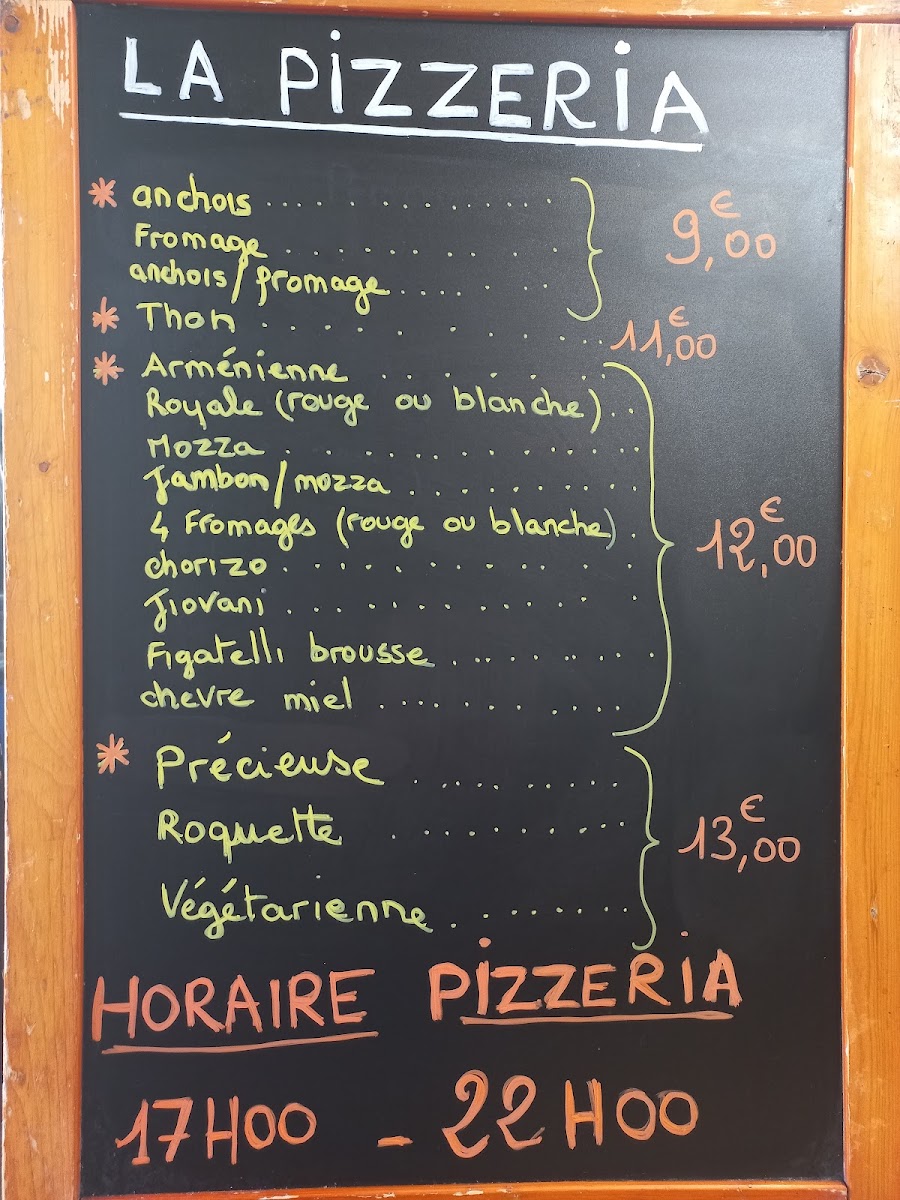 LA PIZZERIA
* anchois .................
Fromage ............
anchois/fromage ....... 9,00€
* Thon ............ 11,00€
* Arménienne ..........
Royale (rouge ou blanche) ..
Mozza .............
Jambon/mozza ..........
4 Fromages (rouge ou blanche) .
chorizo ............. 12,00€
Jiovani .............
Figatelli brousse .........
chevre miel ..........
* Précieuse ..........
Roquette .......... 13,00€
Végétarienne ........
HORAIRE PIZZERIA
17H00 - 22H00